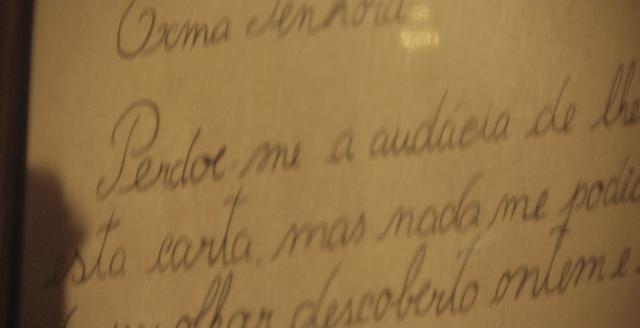 Exma Senhora
Perdoe-me a audácia de lhe
esta carta, mas nada me podia
olhar descoberto ontem e